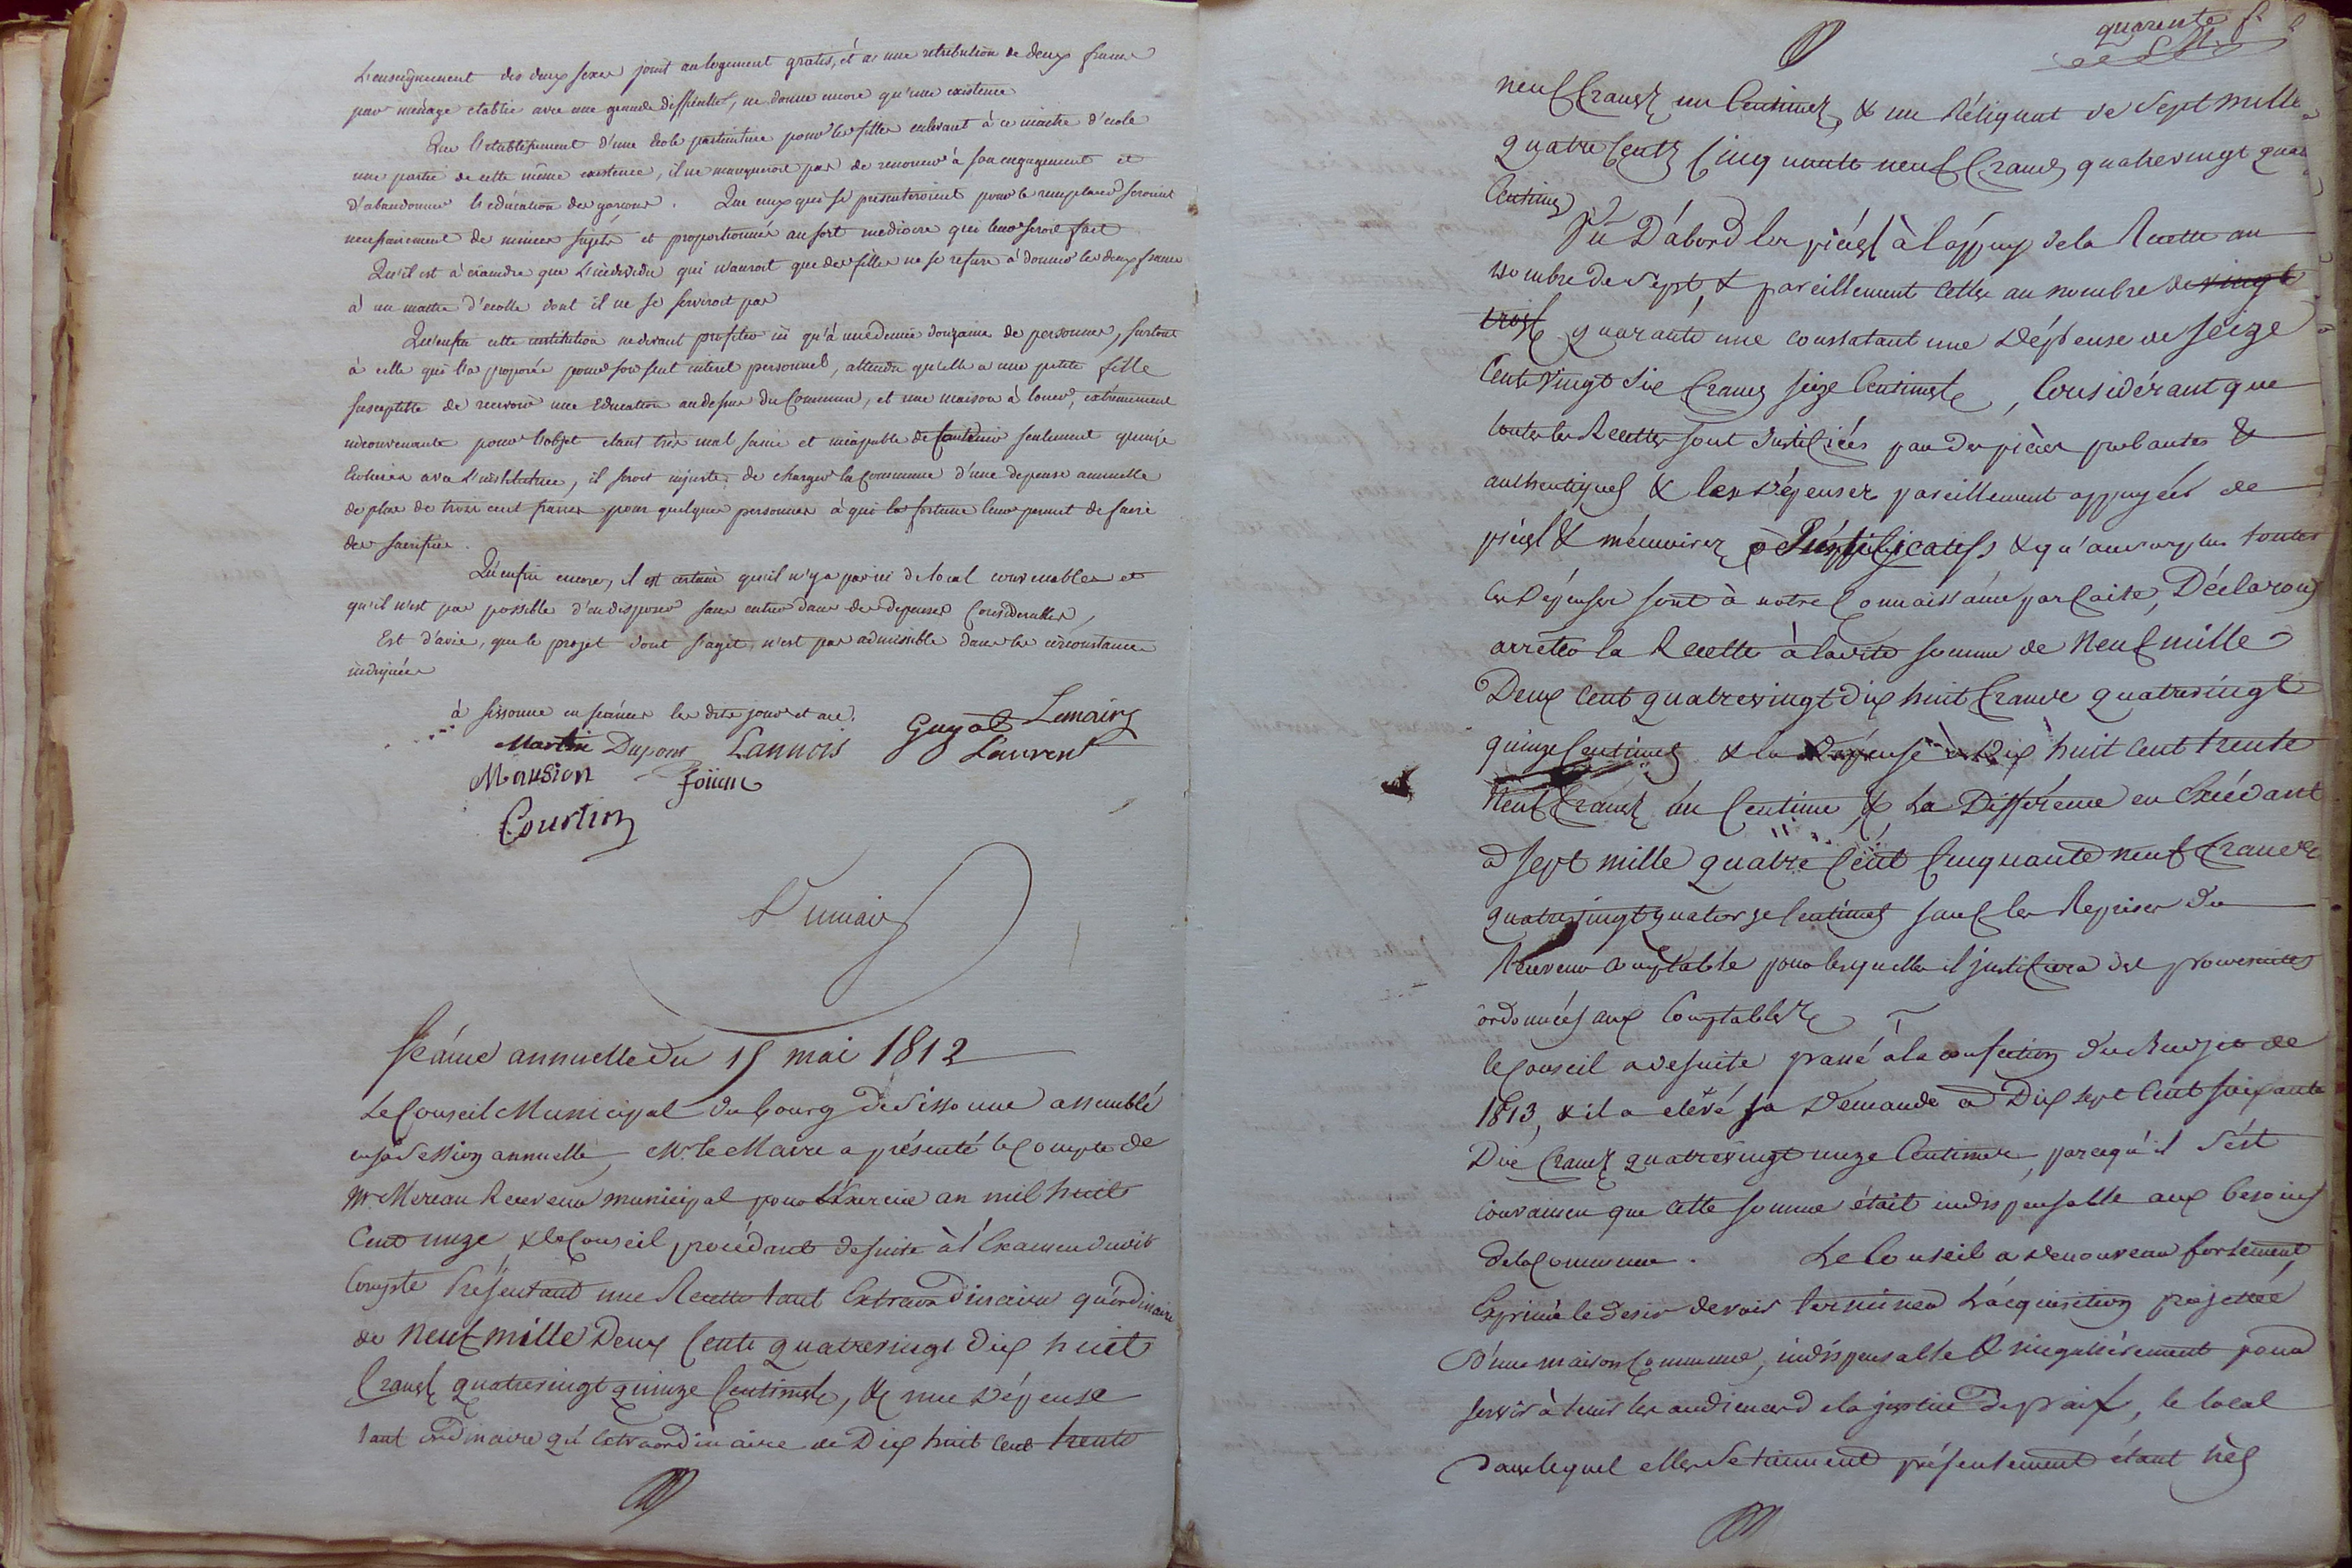 L'enseignement des deux sexes jouit au logement gratis, et a une retribution de deux francs
par menage etablie avec une grande difficulté, ne donne encore qu'une existence
Que l'etablissement d'une Ecole particuliere pour les filles enlevant à ce maitre d'ecole
une partie de cette même existence, il ne manqueroit pas de renoncer à son engagement et
d'abandonner l'education des garcons. Que ceux qui se presenteroient pour le remplacer seroient
necessairement de minces sujets et proportionnés au sort mediocre qui leur seroit fait
Qu'il est à craindre que l'individu qui n'auroit que des filles ne se refuse à donner les deux francs
à un maitre d'ecolle dont il ne se serviroit pas
Qu'enfin cette institution ne devant profiter ici qu'à une demie douzaine de personnes, surtout
à celle qui l'a proposée pour son seul interet personnel, attendu qu'elle a une petite fille
susceptible de recevoir une Education au dessus du Commun, et une maison à louer, extremement
inconvenante pour l'objet etant très mal saine et incapable de contenir seulement quinze
Ecolieres avec l'institutrice, il seroit injuste de charger la Commune d'une depense annuelle
de plus de trois cent francs pour quelques personnes à qui la fortune leur permet de faire
des sacrifices.
Qu'enfin encore, il est certain qu'il n'y a point ici de local convenable et
qu'il n'est pas possible d'en disposer sans entrer dans des depenses Considerables,
Est d'avis, que le projet dont s'agit, n'est pas admissible dans les circonstances
indiquées
à sissonne en seance les dits jour et an.
Martin Dupont Lannois Guyot Lemaire
Laurent
Mansion
Courtin
Séance annuelle du 15 mai 1812
Le Conseil Municipal du bourg de Sissonne assemblé
en sa Session annuelle, Mr. le Maire a présenté le Compte de
Mr. Moreau Receveur municipal pour l'Exercice an mil huit
Cent onze, & le Conseil procédant de suite à l'Examen dudit
Compte Présentant une Recette tant Extraordinaire qu'ordinaire
de Neuf mille Deux Cents quatrevingt dix huit
francs quatrevingt quinze Centimes, & une Dépense
tant ordinaire qu'Extraordinaire de Dix huit cent trente
quarente f.
neuf francs un Centimes, & un Réliquat de Sept mille
quatre Cents Cinquante neuf francs quatrevingt
Centimes
Vû D'abord les piéces à l'appuy de la Recette au
nombre de Sept, & pareillement Celles au nombre de vingt
trois quarante une constatant une Dépense de Seize
Cents vingt Six francs seize Centimes, Considérant que
toutes les Recettes sont Justifiées par des pièces probantes &
authentiques & les Dépenses pareillement appuyées de
piéces & mémoires Justificatifs & qu'au surplus toutes
ces Dépenses sont à notre Connaissance parfaite, Déclarons
arrêter la Recette à la dite somme de Neuf mille
Deux Cent quatrevingt dix huit francs quatrevingt
quinze Centimes & la Dépense à Dix huit cent trente
Neuf francs un Centime, & la Différence en Excédant
à Sept mille quatre Cent Cinquante neuf francs
quatrevingt quatorze Centimes sauf les Reprises du
Receveur Comptable pour lesquelles il justifiera des poursuites
ordonnées aux Comptables
le Conseil a de suite passé à la confection du Budjet de
1813, & il a elévé sa Demande à Dix sept Cent soixante
Dix francs quatrevingt onze Centimes, parcequ'il s'est
convaincu que cette somme était indispensable aux besoins
de la Commune. Le Conseil a de nouveau fortement
Exprimé le desir de voir terminer l'acquisition projettée
D'une maison Commune, indispensable & singulièrement pour
servir à tenir les audiences de la justice de paix, le local
dans lequel elles se tiennent présentement étant très